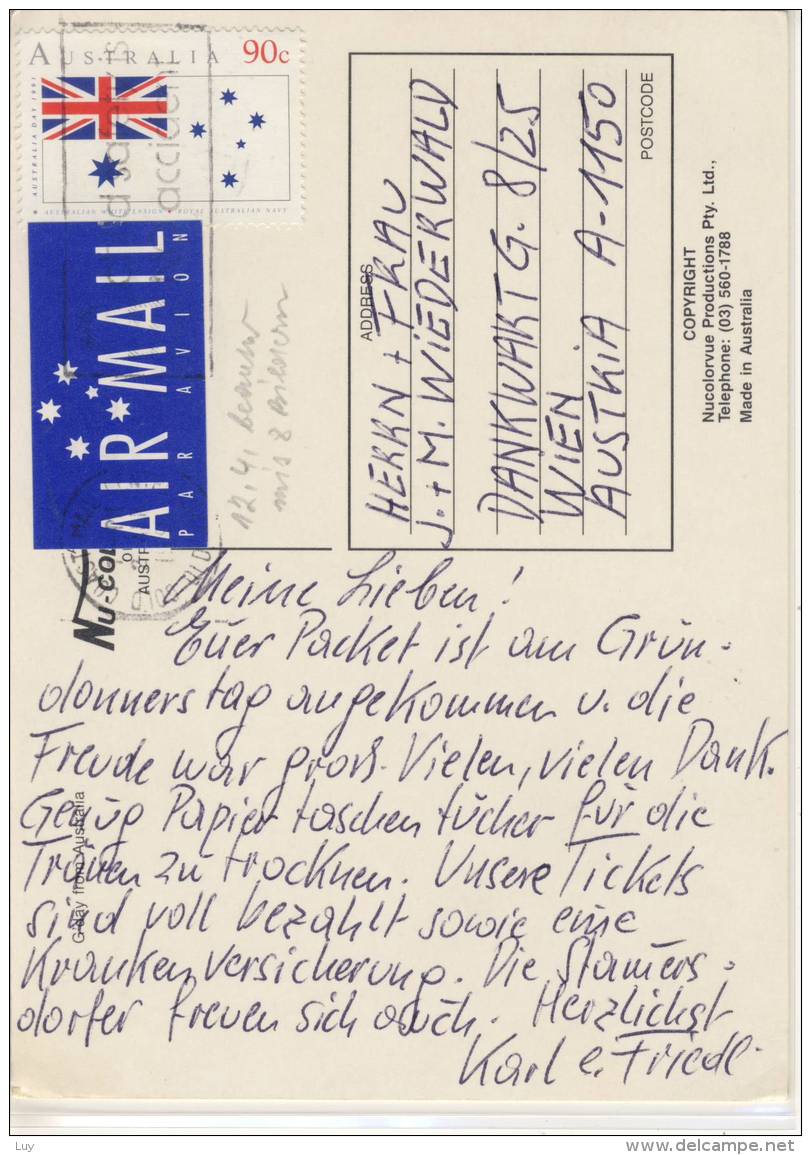 AUSTRALIA 90c
AUSTRALIA DAY 1991
AUSTRALIAN WHITE ENSIGN • ROYAL AUSTRALIAN NAVY
accident
AIR MAIL
PAR AVION
12.4.
mit 8
ADDRESS
HERRN + FRAU
J. + M. WIEDERWALD
DANKWARTG. 8/25
WIEN
AUSTRIA A-1150
POSTCODE
COPYRIGHT
Nucolorvue Productions Pty. Ltd.,
Telephone: (03) 560-1788
Made in Australia
NU-COL
G'day from Australia
Meine Lieben!
Euer Packet ist am Grün-
donnerstag angekommen u. die
Freude war groß. Vielen, vielen Dank.
Genug Papiertaschentücher für die
Tränen zu trocknen. Unsere Tickets
sind voll bezahlt sowie eine
Krankenversicherung. Die Stamers-
dorfer freuen sich auch. Herzlichst
Karl e. Friedl.
Luy
delcampe.net